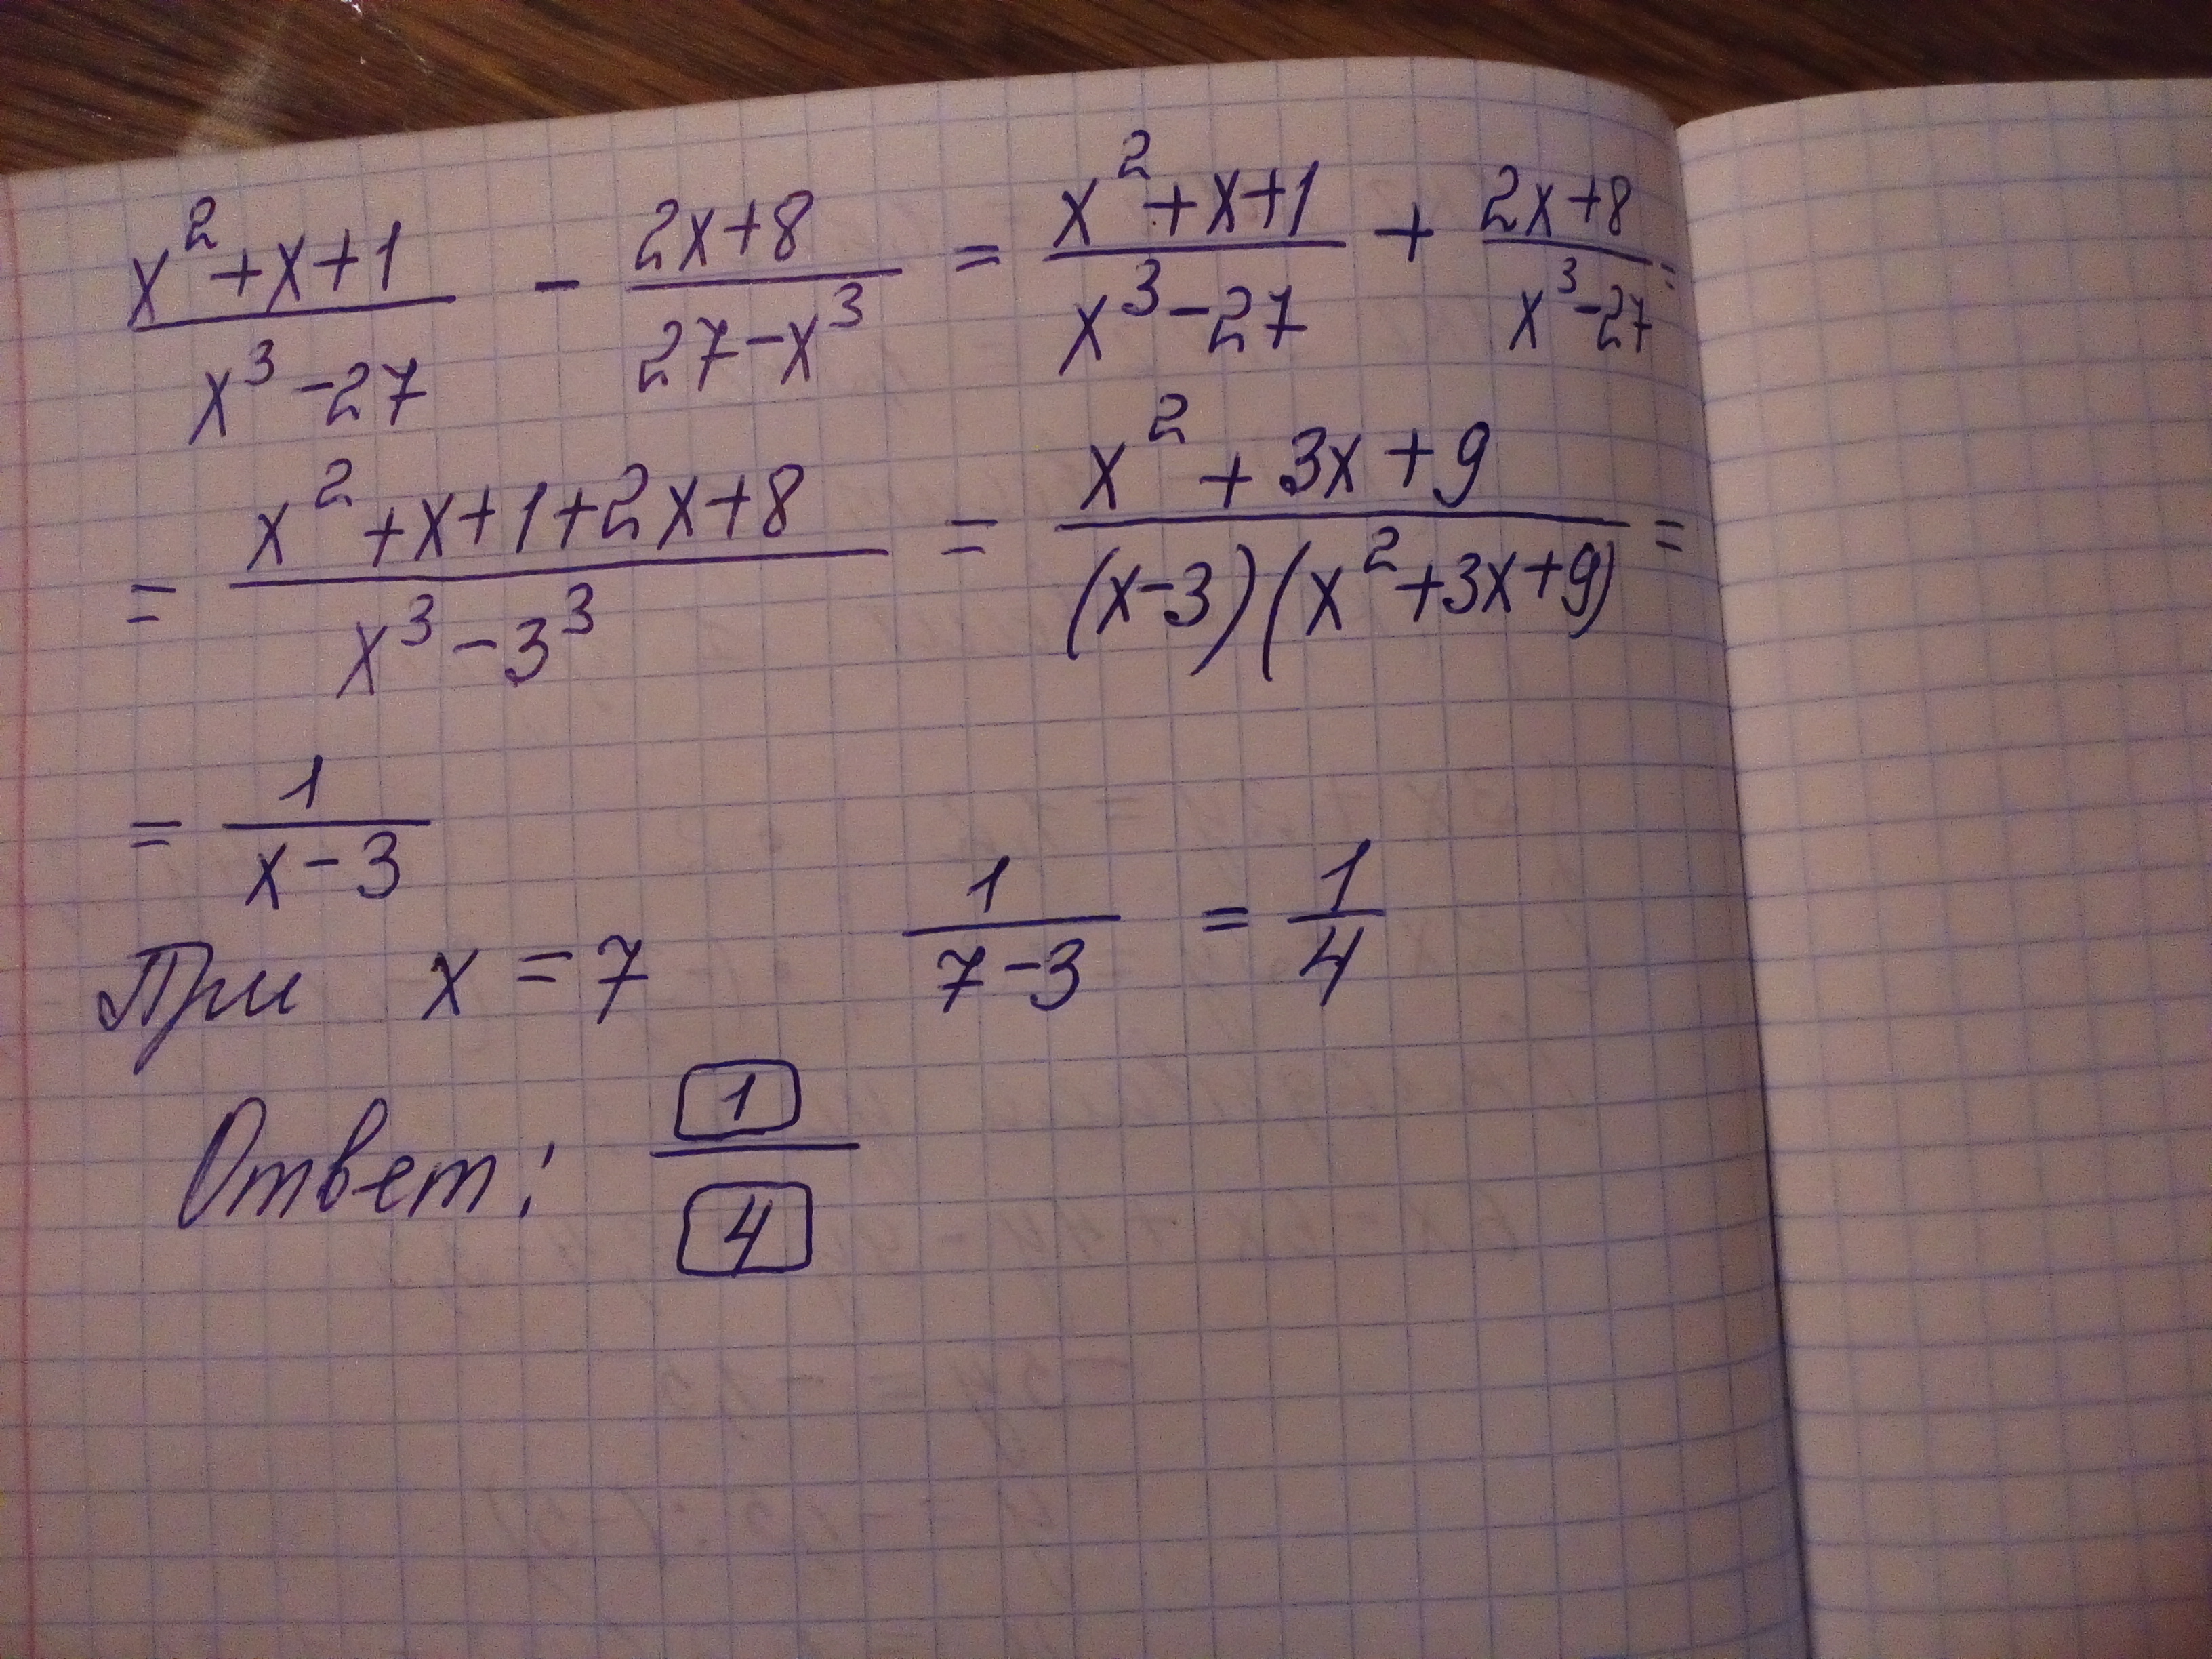 x²+x+1/x³-27 - 2x+8/27-x³ = x²+x+1/x³-27 + 2x+8/x³-27 =
= x²+x+1+2x+8/x³-3³ = x²+3x+9/(x-3)(x²+3x+9) =
= 1/x-3
При x=7 1/7-3 = 1/4
Ответ: 1/4